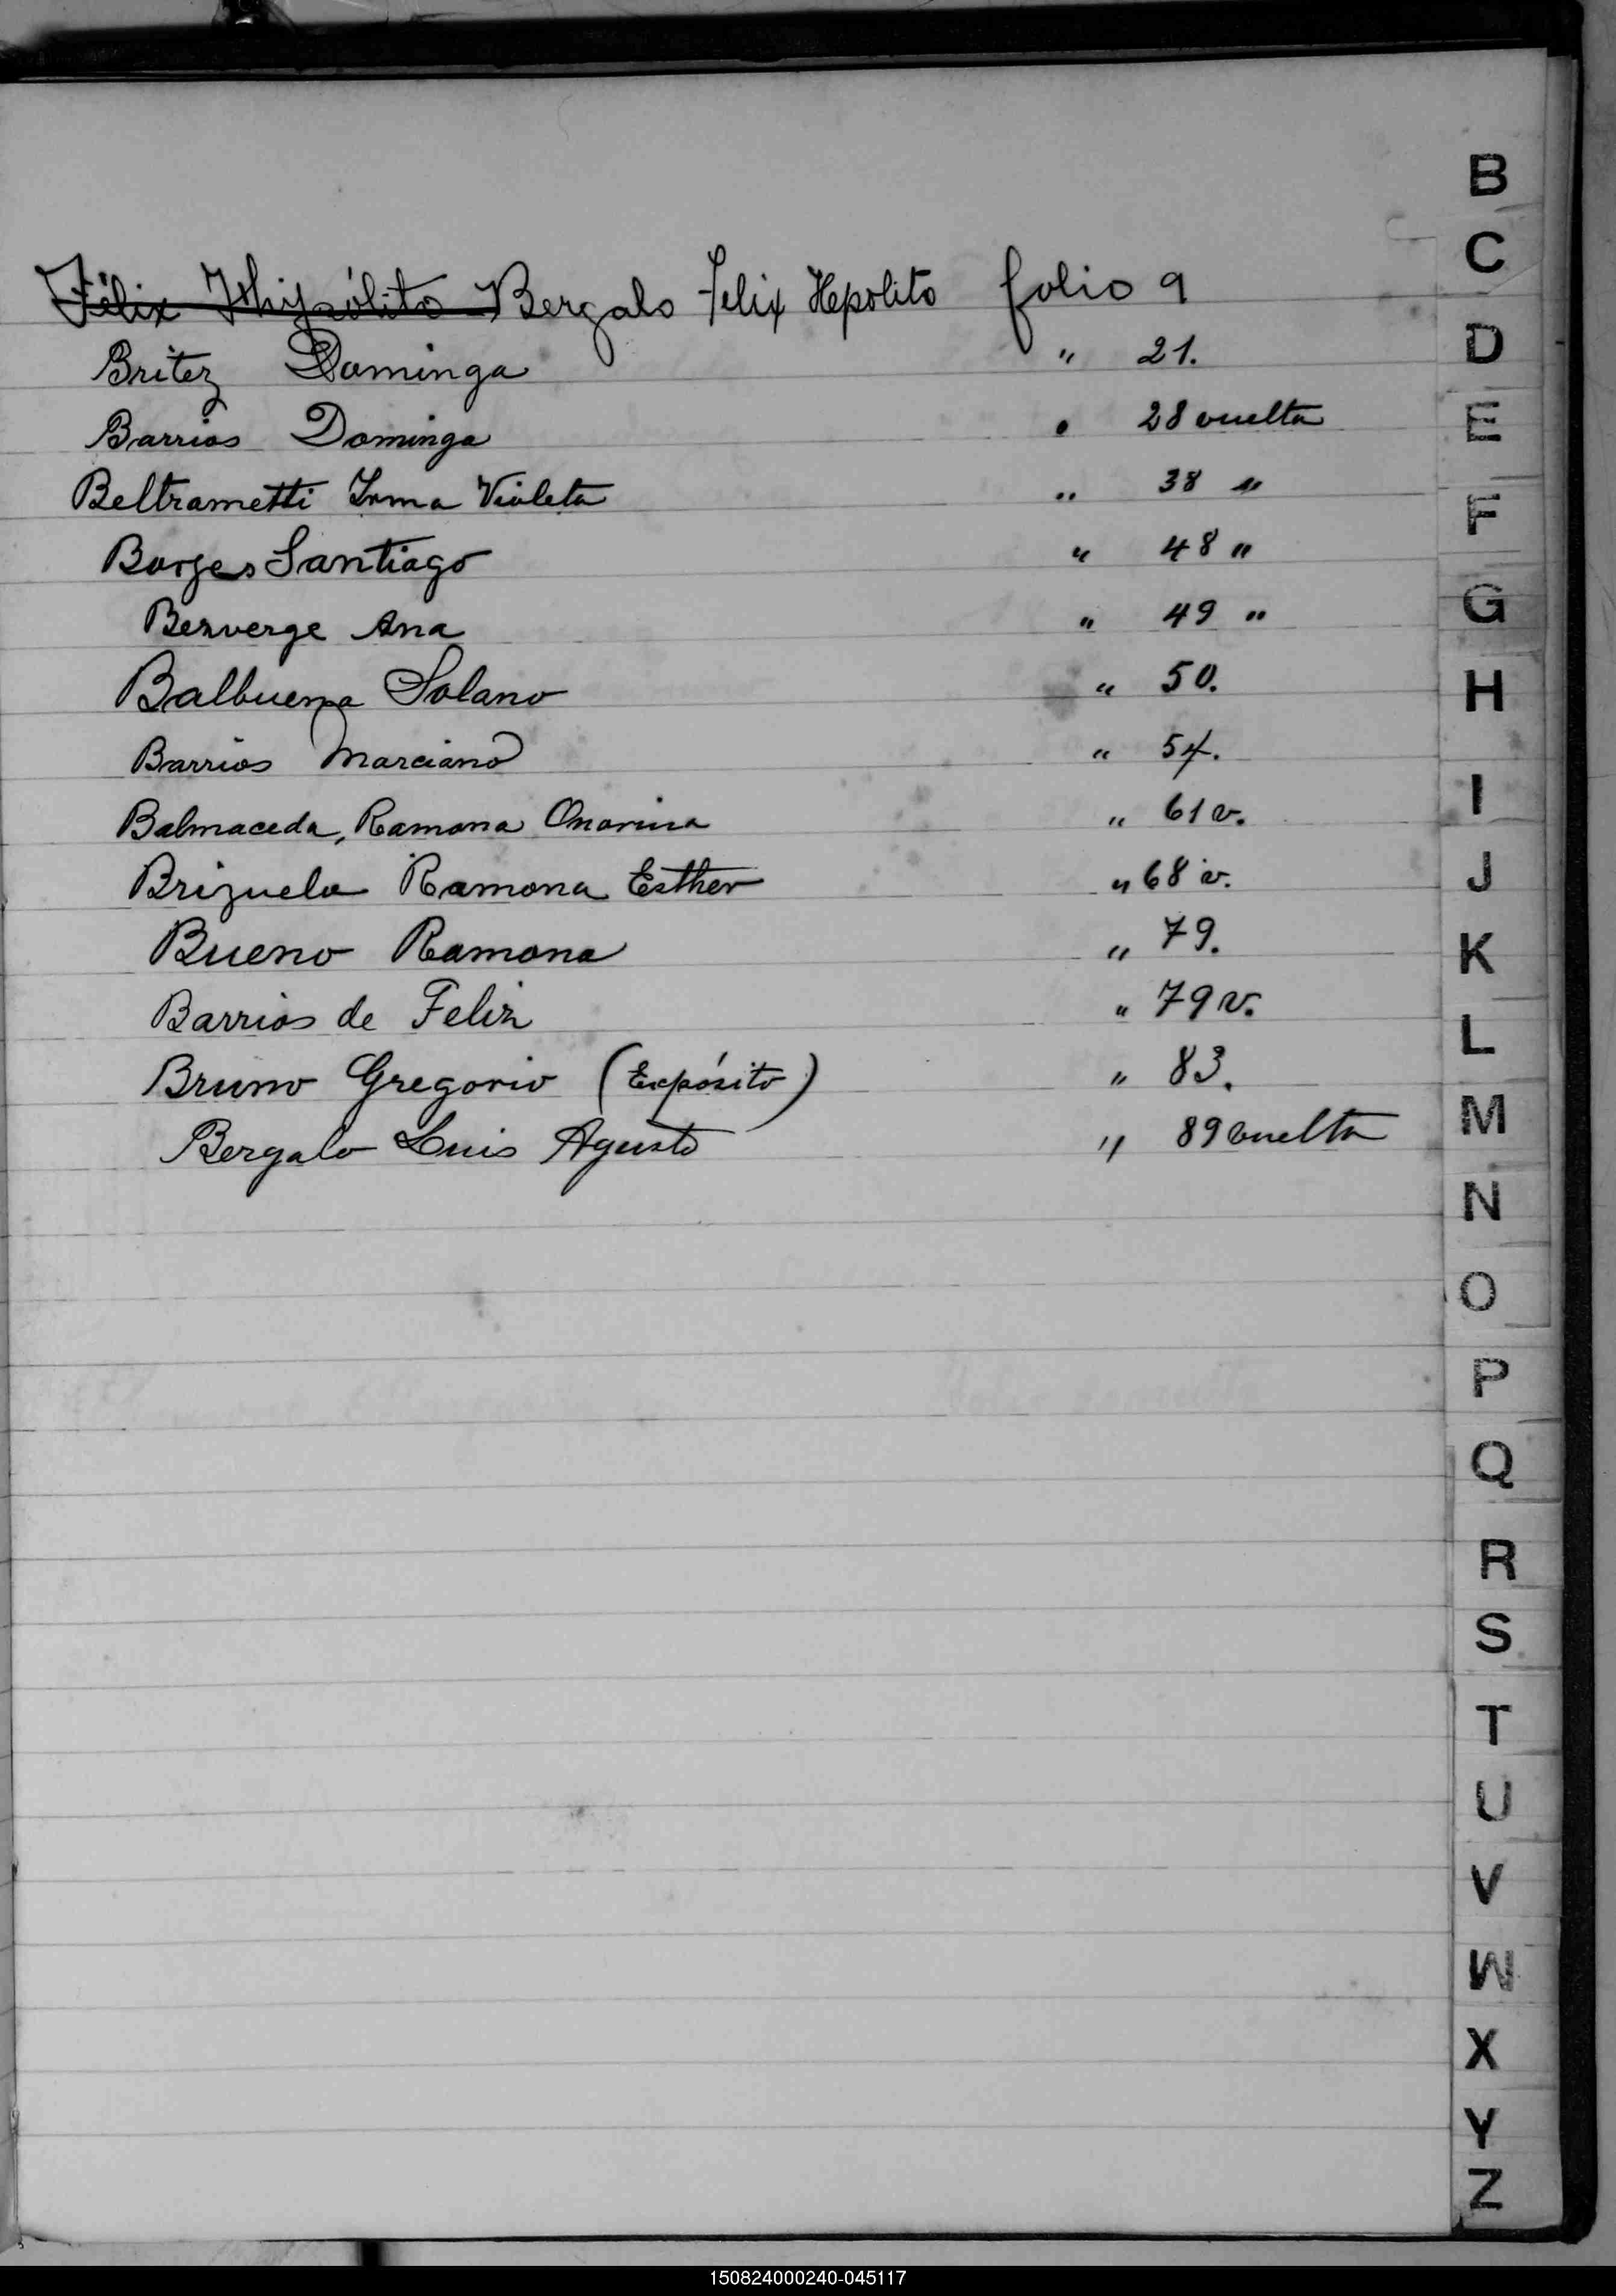 Félix Ihipólito Bergalo Felix Hepolito folio 9
Britez Dominga " 21.
Barrios Dominga " 28 vuelta
Beltrametti Irma Violeta " 38 "
Borges Santiago " 48 "
Berverge Ana " 49 "
Balbuena Solano " 50.
Barrios Marciano " 54.
Balmaceda, Ramona Onorina " 61 v.
Brizuela Ramona Esther " 68 v.
Bueno Ramona " 79.
Barrios de Feliz " 79 v.
Bruno Gregorio (Expósito) " 83.
Bergalo Luis Agusto " 89 vuelta
B
C
D
E
F
G
H
I
J
K
L
M
N
O
P
Q
R
S
T
U
V
W
X
Y
Z
150824000240-045117